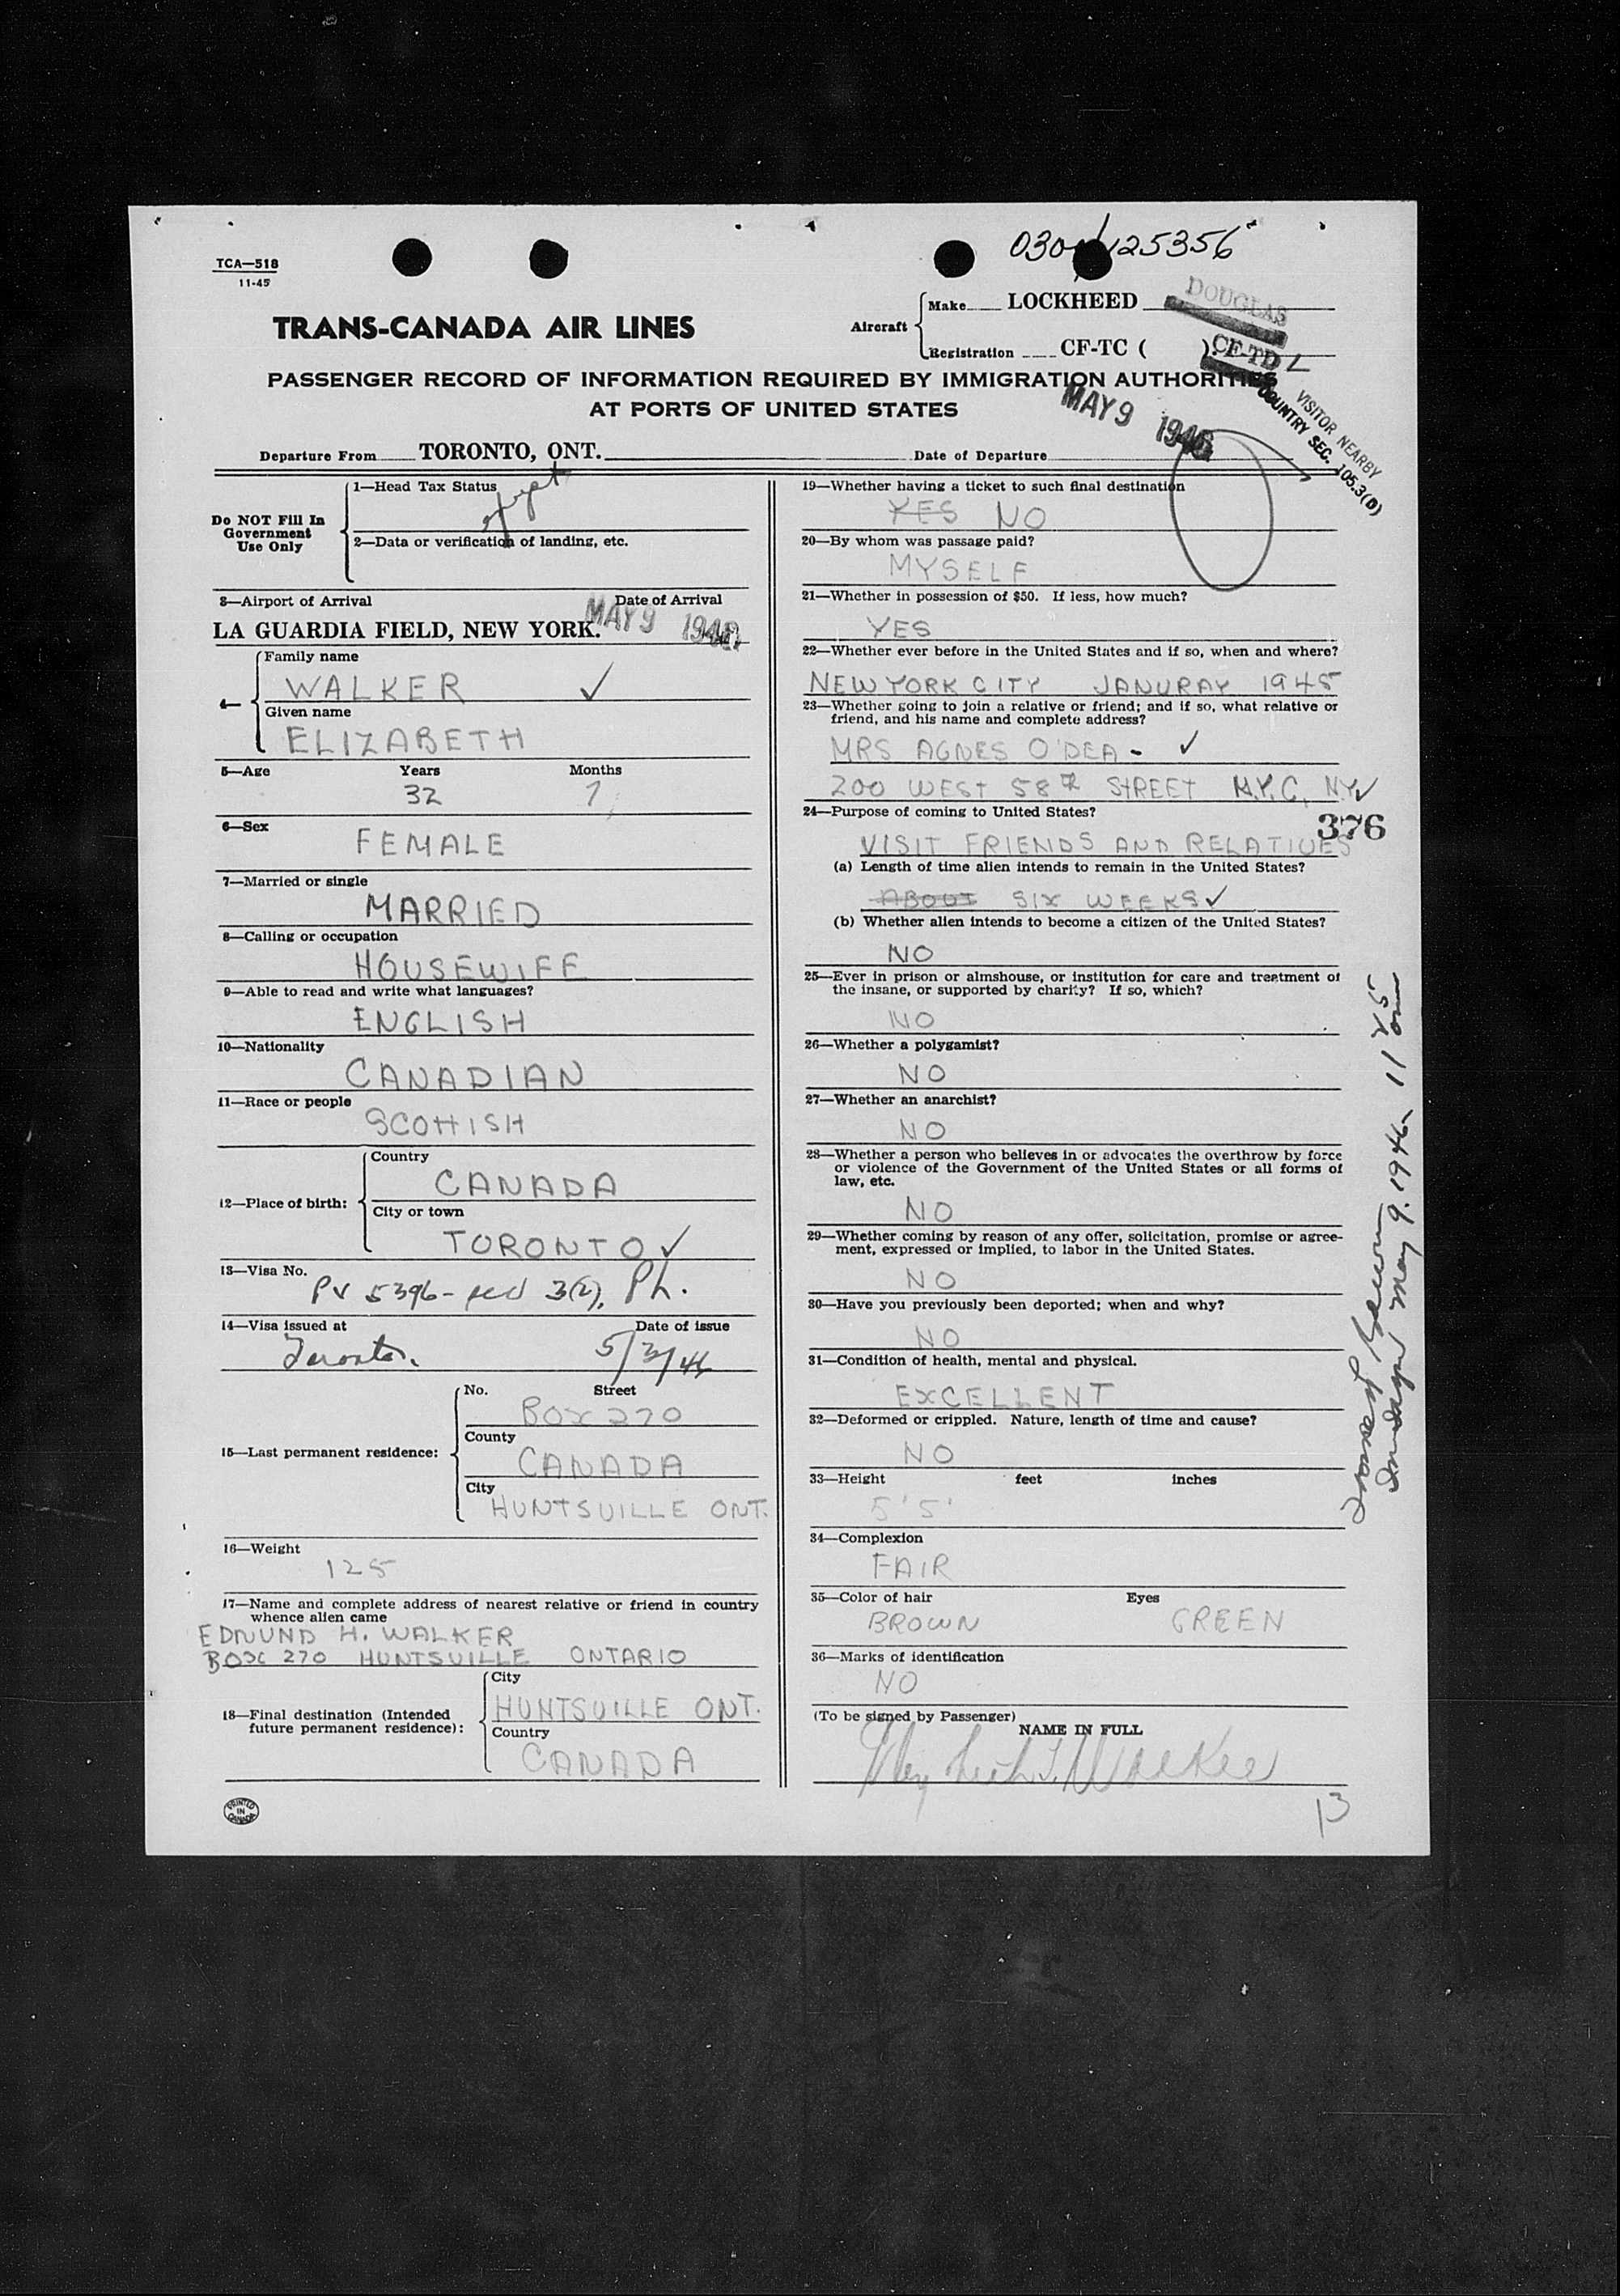 0300/125356
TCA—518
11-45
TRANS-CANADA AIR LINES
Aircraft
Make LOCKHEED
DOUGLAS
Registration CF-TC ( ).
CF-TD L
PASSENGER RECORD OF INFORMATION REQUIRED BY IMMIGRATION AUTHORITIES
AT PORTS OF UNITED STATES
MAY 9 1946
VISITOR NEARBY
COUNTRY SEC. 105.3(D)
Departure From TORONTO, ONT.
Date of Departure
Do NOT Fill In
Government
Use Only
1—Head Tax Status
2—Data or verification of landing, etc.
3—Airport of Arrival Date of Arrival
LA GUARDIA FIELD, NEW YORK. MAY 9 1946
4—
Family name
WALKER ✓
Given name
ELIZABETH
5—Age Years Months
32 7
6—Sex
FEMALE
7—Married or single
MARRIED
8—Calling or occupation
HOUSEWIFE
9—Able to read and write what languages?
ENGLISH
10—Nationality
CANADIAN
11—Race or people
SCOTTISH
12—Place of birth:
Country
CANADA
City or town
TORONTO ✓
13—Visa No.
PV 5396- 3(2), Ph.
14—Visa issued at Date of issue
Toronto. 5/3/46
15—Last permanent residence:
No. Street
BOX 270
County
CANADA
City
HUNTSVILLE ONT.
16—Weight
125
17—Name and complete address of nearest relative or friend in country
whence alien came
EDMUND H. WALKER
BOX 270 HUNTSVILLE ONTARIO
18—Final destination (Intended
future permanent residence):
City
HUNTSVILLE ONT.
Country
CANADA
PRINTED
IN
CANADA
19—Whether having a ticket to such final destination
YES NO
20—By whom was passage paid?
MYSELF
21—Whether in possession of $50. If less, how much?
YES
22—Whether ever before in the United States and if so, when and where?
NEW YORK CITY JANURAY 1945
23—Whether going to join a relative or friend; and if so, what relative or
friend, and his name and complete address?
MRS AGNES O'DEA - ✓
200 WEST 58th STREET N.Y.C, NY ✓
24—Purpose of coming to United States?
376
VISIT FRIENDS AND RELATIVES
(a) Length of time alien intends to remain in the United States?
ABOUT SIX WEEKS ✓
(b) Whether alien intends to become a citizen of the United States?
NO
25—Ever in prison or almshouse, or institution for care and treatment of
the insane, or supported by charity? If so, which?
NO
26—Whether a polygamist?
NO
27—Whether an anarchist?
NO
28—Whether a person who believes in or advocates the overthrow by force
or violence of the Government of the United States or all forms of
law, etc.
NO
29—Whether coming by reason of any offer, solicitation, promise or agree-
ment, expressed or implied, to labor in the United States.
NO
30—Have you previously been deported; when and why?
NO
31—Condition of health, mental and physical.
EXCELLENT
32—Deformed or crippled. Nature, length of time and cause?
NO
33—Height feet inches
5' 5'
34—Complexion
FAIR
35—Color of hair Eyes
BROWN GREEN
36—Marks of identification
NO
(To be signed by Passenger)
NAME IN FULL
Elizabeth J. Walker
13
May 9. 1946 11 25